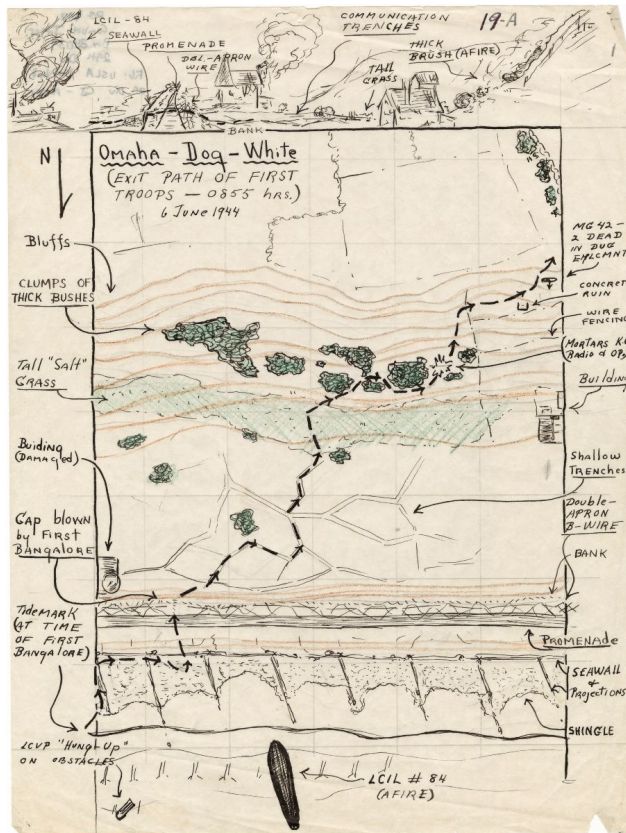 LCIL - 84
SEAWALL
PROMENADE
DBL.-APRON
WIRE
COMMUNICATION
TRENCHES
19-A
THICK
BRUSH (AFIRE)
TALL
GRASS
84
BANK
N
Omaha - Dog - White
(EXIT PATH OF FIRST
TROOPS - 0855 hrs.)
6 JUNE 1944
Bluffs
CLUMPS OF
THICK BUSHES
Tall "Salt"
GRASS
Buiding
(DAMAged)
Gap blown
by First
BANGALORE
TideMARK
(AT TIME
OF FIRST
BANGALORE)
LCVP "Hung-Up"
ON OBSTACLES
MG 42 -
2 DEAD
IN DUG
EMLCMNT
CONCRET
RUIN
WIRE
FENCING
Building
Shallow
TRENCHES
Double-
APRON
B-WIRE
BANK
PROMENADE
SEAWALL
&
PROJECTIONS
SHINGLE
LCIL # 84
(AFIRE)